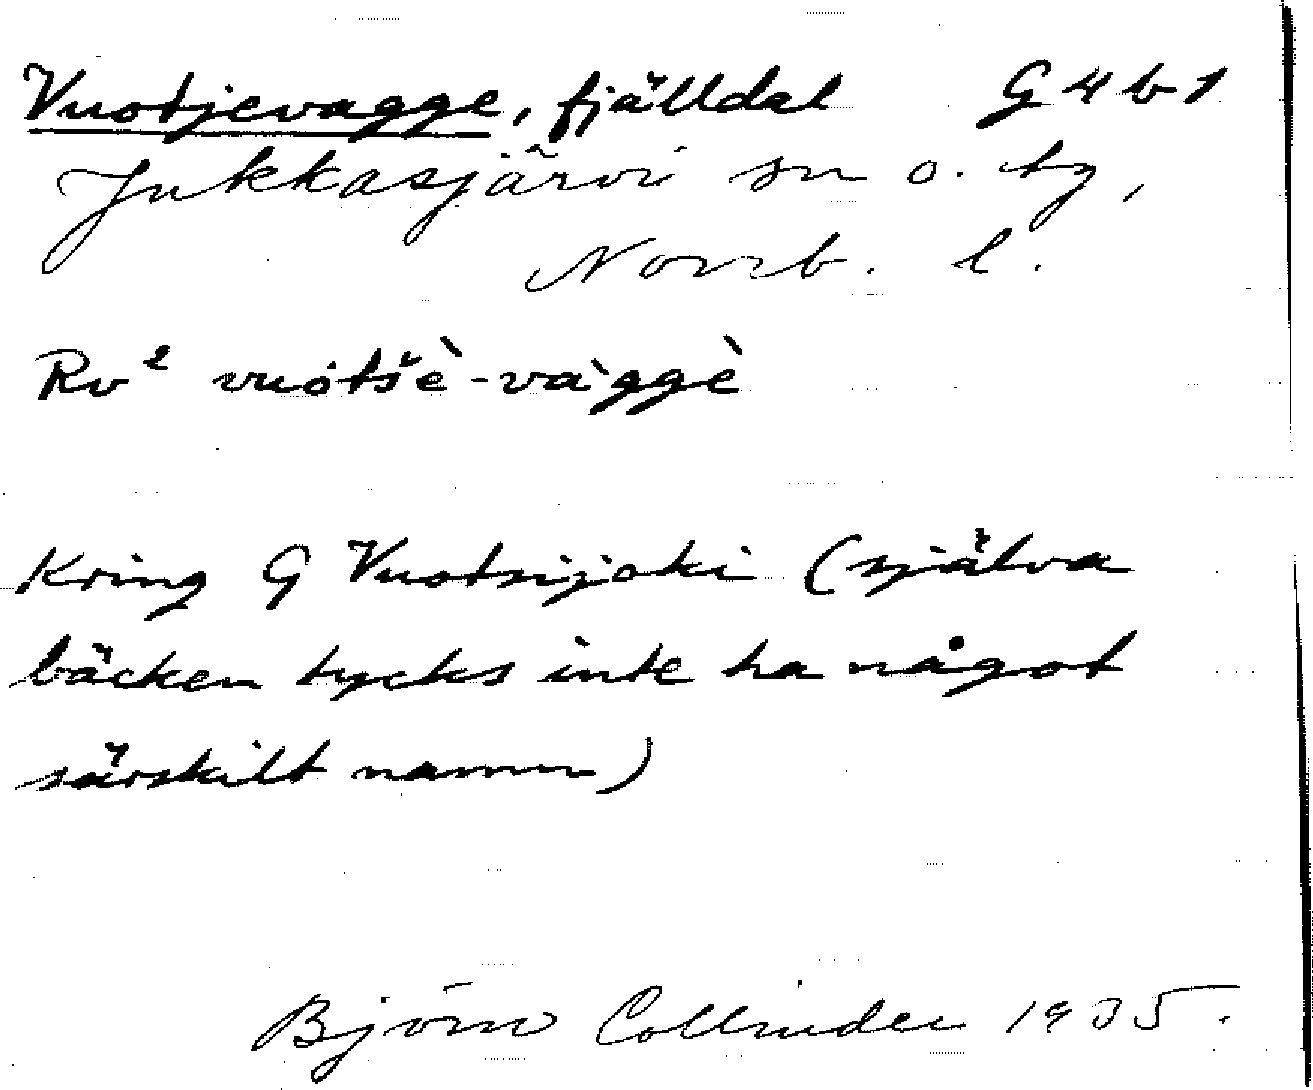 Vuotjevagge, fjälldal G 4 b 1
Jukkasjärvi sn o. tg,
Norrb. l.
Rv² vuòtšè-vàggè
Kring G Vuotsijoki (själva
bäcken tycks inte ha något
särskilt namn)
Björn Collinder 1935.